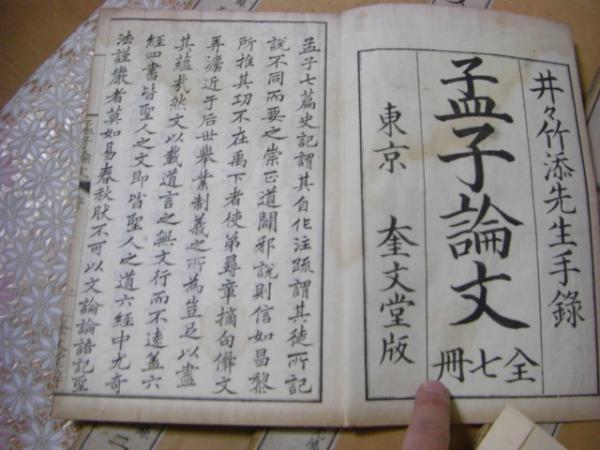 井々竹添先生手錄
孟子論文
全七冊
東京 奎文堂版
孟子七篇史記謂其自作注疏謂其徒所記
說不同而要之崇正道闢邪說則信如昌黎
所推其功不在禹下者使弟尋章摘句儕文
弄瀋近于后世舉業制義之所為豈足以盡
其蘊哉然文以載道言之無文行而不遠蓋六
經四書皆聖人之文即皆聖人之道六經中尤奇
法謹嚴者莫如易春秋肰不可以文論論語記聖
孟子論文